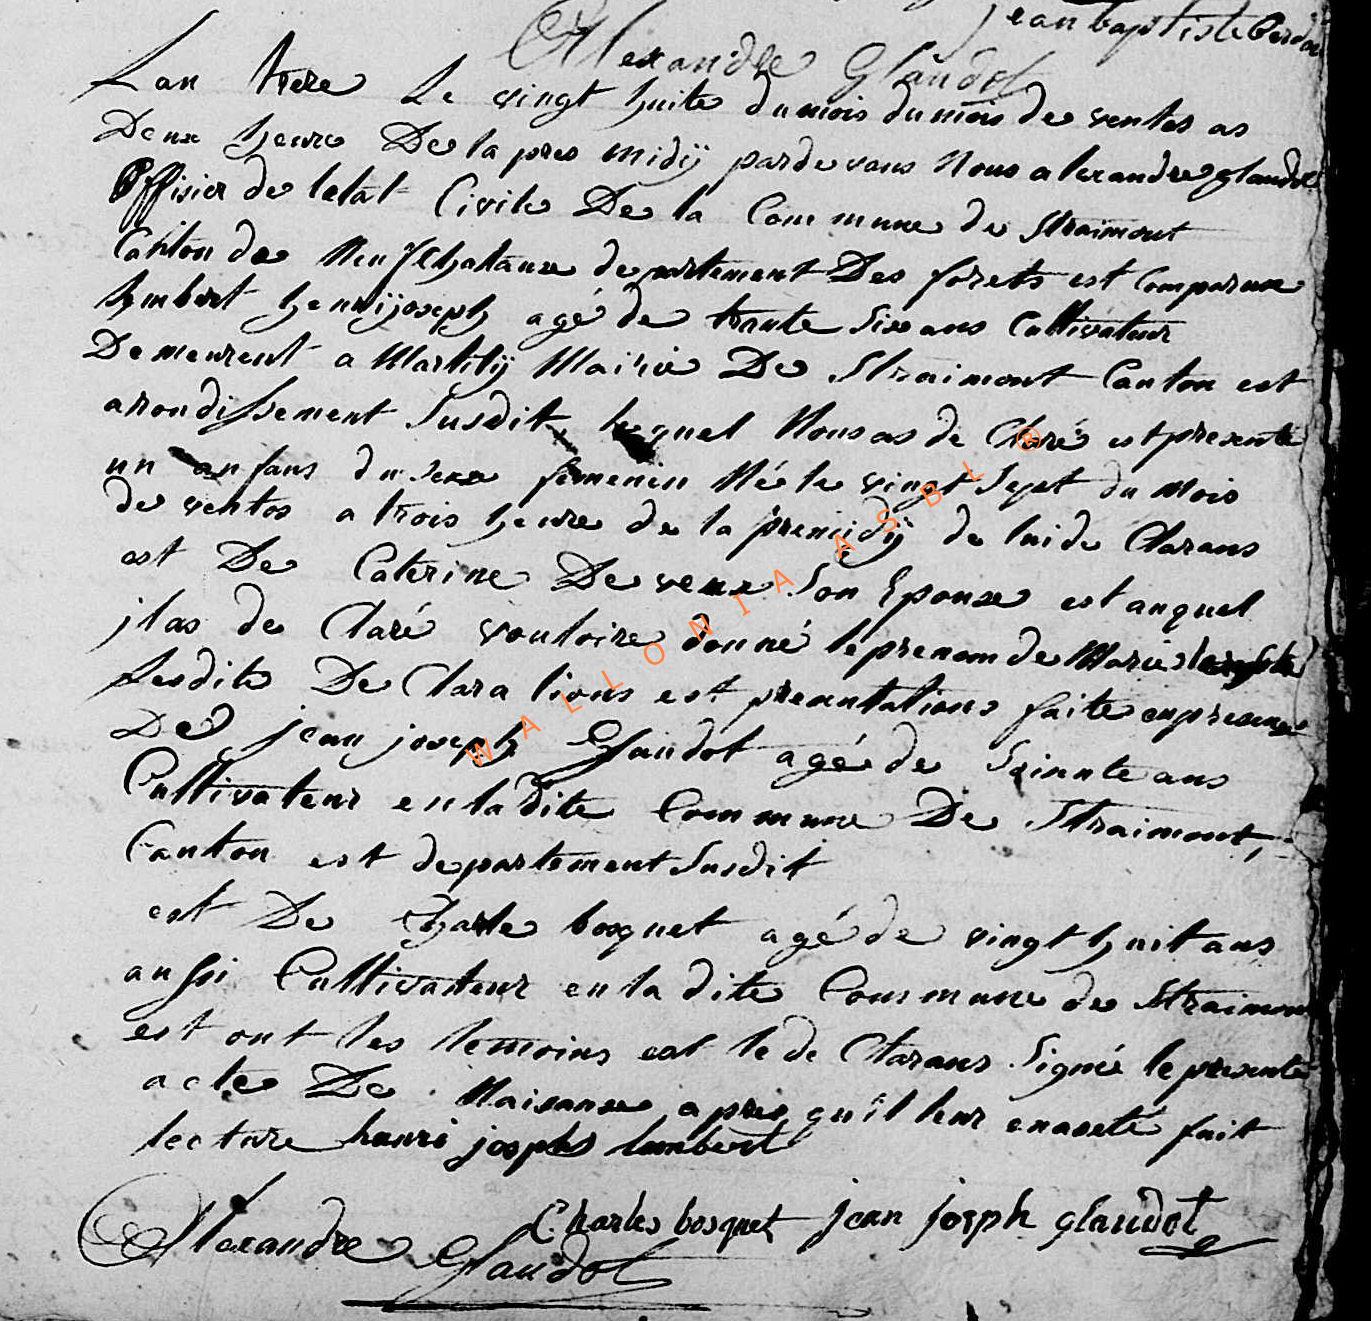 jean baptiste
Alexandre Glaudot
Lan treze Le vingt huite du mois du mois de ventos as
Deux heure De la pres midij par de vans Nous alexandre glaudot
Offisier de letat Civile De la Commune de Straimont
Canton de Neufchataux departement Des forets est Comparux
Lambert henrij joseph agé de trante Six ans Cultivateur
Demeurent a Martilij Mairie De Straimont Canton est
arondissement Susdit, lequel Nous as de Claré est presenté
un anfans du sexe femenin Né le vingt Sept du Mois
de ventos a trois heure de la premidij de lui de Clarans
est De Caterine De veux Son Epouse est auquel
jl as de Claré vouloire donné le prenom de Marie
Lesdite De Clarations est presantations faite en presence
De jean joseph Glaudot agé de Soisante ans
Cultivateur en la dite Commune De Straimont,
Canton est departement Susdit
est De Charle bosquet agé de vingt huit ans
aussi Cultivateur en la dite Commune de Straimont
est ont les temoins est le de Clarans Signé le presente
acte De Naisanse apres qu'il leur en aeté fait
lecture henri joseph lambert
Charles bosquet jean joseph glaudot
Alexandre Glaudot
WALLONIA ASBL ®